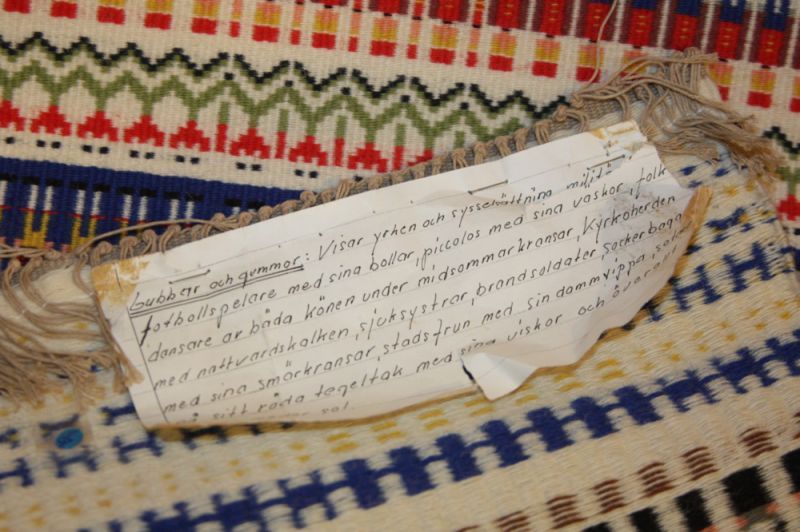 Gubbar och gummor: Visar yrken och sysselsättning militär
fotbollspelare med sina bollar, piccolos med sina väskor, folk
dansare av båda könen under midsommarkransar, Kyrkoherden
med nattvardskalken, sjuksystrar, brandsoldater, sockerbaga
med sina smörkransar, stadsfrun med sin dammvippa, sota
på sitt röda tegeltak med sina viskor och överallt
sol.